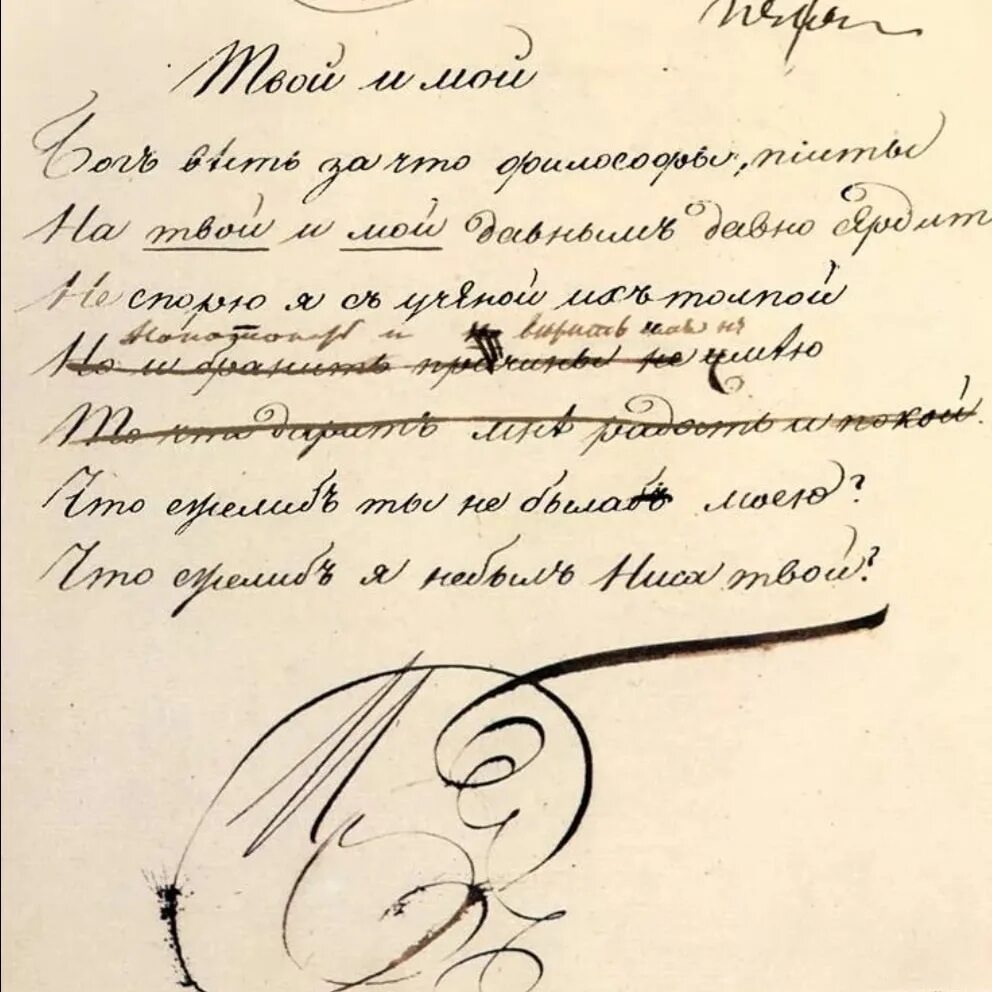 Твой и мой
Богъ вѣсть за что философы, піиты
На твой и мой давнымъ давно сердит
Не спорю я съ учёной ихъ толпой
и вѣрить
Но и бранить причины не имѣю
То что даритъ мнѣ радость и покой.
Что ежелибъ ты не была моею?
Что ежелибъ я небылъ Ниса твой?